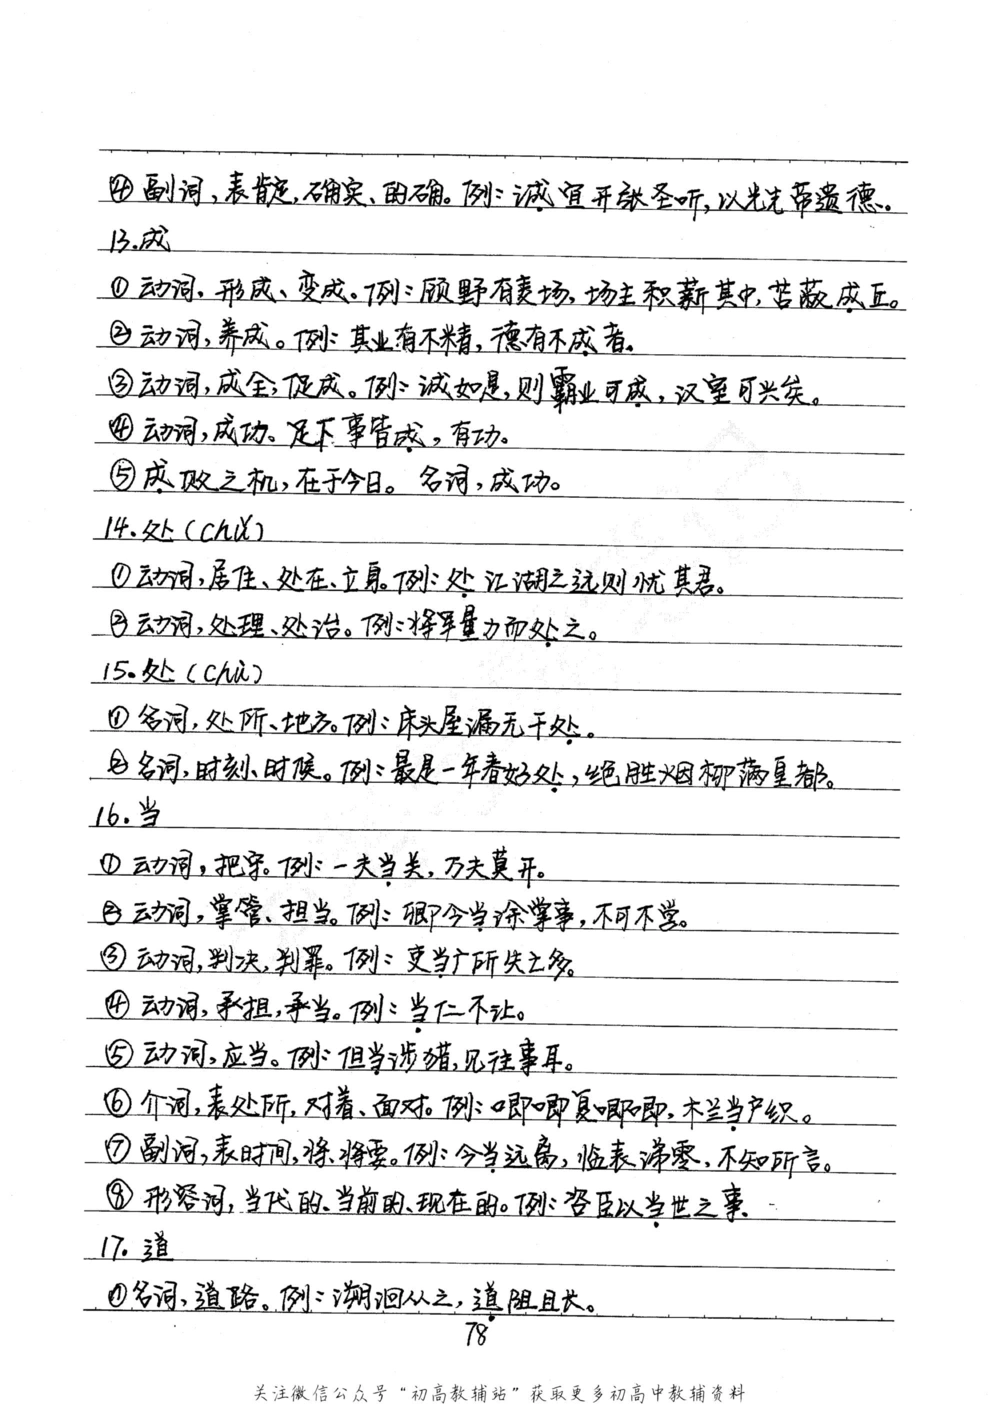 ④副词,表肯定,确实、的确。例:诚宜开张圣听,以光先帝遗德。
13.成
①动词,形成、变成。例:顾野有麦场,场主积薪其中,苫蔽成丘。
②动词,养成。例:其业有不精,德有不成者。
③动词,成全;促成。例:诚如是,则霸业可成,汉室可兴矣。
④动词,成功。足下事皆成,有功。
⑤成败之机,在于今日。 名词,成功。
14.处(chǔ)
①动词,居住、处在、立身。例:处江湖之远则忧其君。
②动词,处理、处治。例:将军量力而处之。
15.处(chù)
①名词,处所、地方。例:床头屋漏无干处。
②名词,时刻、时候。例:最是一年春好处,绝胜烟柳满皇都。
16.当
①动词,把守。例:一夫当关,万夫莫开。
②动词,掌管、担当。例:卿今当涂掌事,不可不学。
③动词,判决,判罪。例:吏当广所失之多。
④动词,承担,承当。例:当仁不让。
⑤动词,应当。例:但当涉猎,见往事耳。
⑥介词,表处所,对着、面对。例:唧唧复唧唧,木兰当户织。
⑦副词,表时间,将、将要。例:今当远离,临表涕零,不知所言。
⑧形容词,当代的、当前的、现在的。例:咨臣以当世之事.
17.道
①名词,道路。例:溯洄从之,道阻且长。
78
关注微信公众号“初高教辅站”获取更多初高中教辅资料